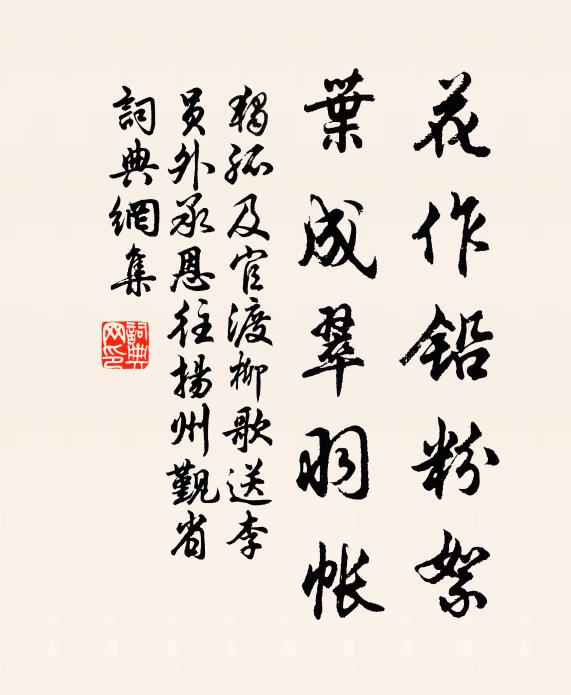 花作鉛粉絮
葉成翠羽帳
獨孤及官渡柳歌送李
員外承恩往揚州觀省
詞典網集
詞典
网印